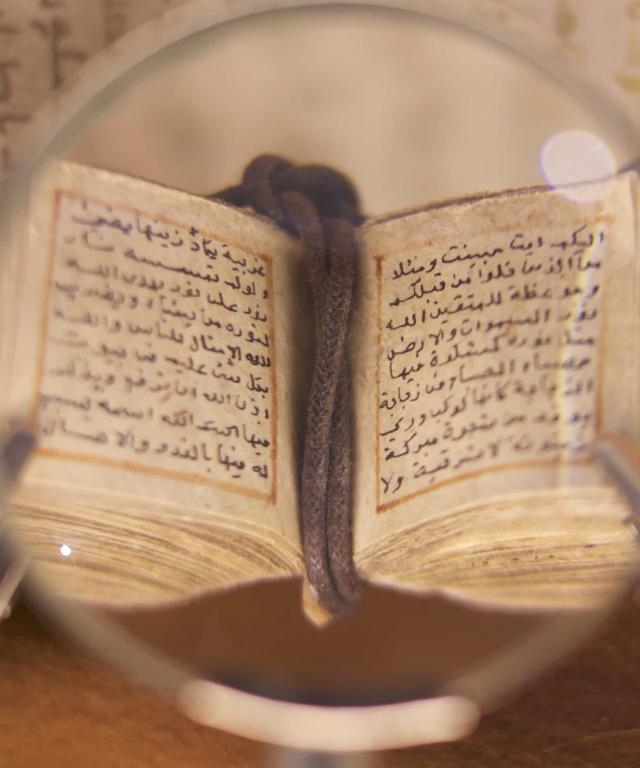 اليكم ايت مبينت ومثلا
من الذين خلوا من قبلكم
وموعظة للمتقين الله
نور السموات والارض
مثل نوره كمشكوة فيها
مصباح المصباح في زجاجة
الزجاجة كانها كوكب دري
يوقد من شجرة مبركة
زيتونة لا شرقية ولا
غربية يكاد زيتها يضيئ
ولو لم تمسسه نار
نور على نور يهدي الله
لنوره من يشاء ويضرب
الله الامثال للناس والله
بكل شئ عليم في بيوت
اذن الله ان ترفع ويذكر
فيها اسمه يسبح
له فيها بالغدو والاصال